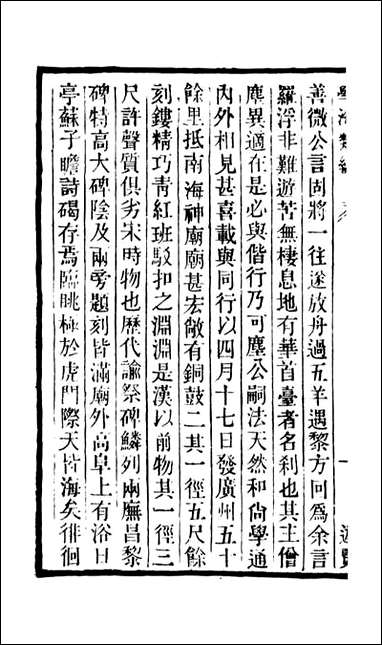 學海類編
善微公言固將一往遂放舟過五羊遇黎方回爲余言
羅浮非難遊苦無棲息地有華首臺者名刹也其主僧
塵異適在是必與偕行乃可塵公嗣法天然和尙學通
內外相見甚喜載與同行以四月十七日發廣州五十
餘里抵南海神廟廟甚宏敞有銅鼓二其一徑五尺餘
刻鏤精巧靑紅班駁扣之淵淵是漢以前物其一徑三
尺許聲質俱劣宋時物也歷代諭祭碑鱗列兩廡昌黎
碑特高大碑陰及兩旁題刻皆滿廟外高阜上有浴日
亭蘇子瞻詩碣存焉臨眺極於虎門際天皆海矣徘徊